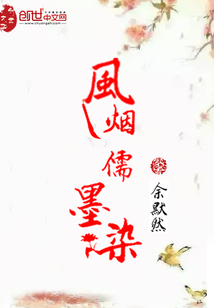 创世中文网
www.chuangshi.com
風烟儒墨染
余默然